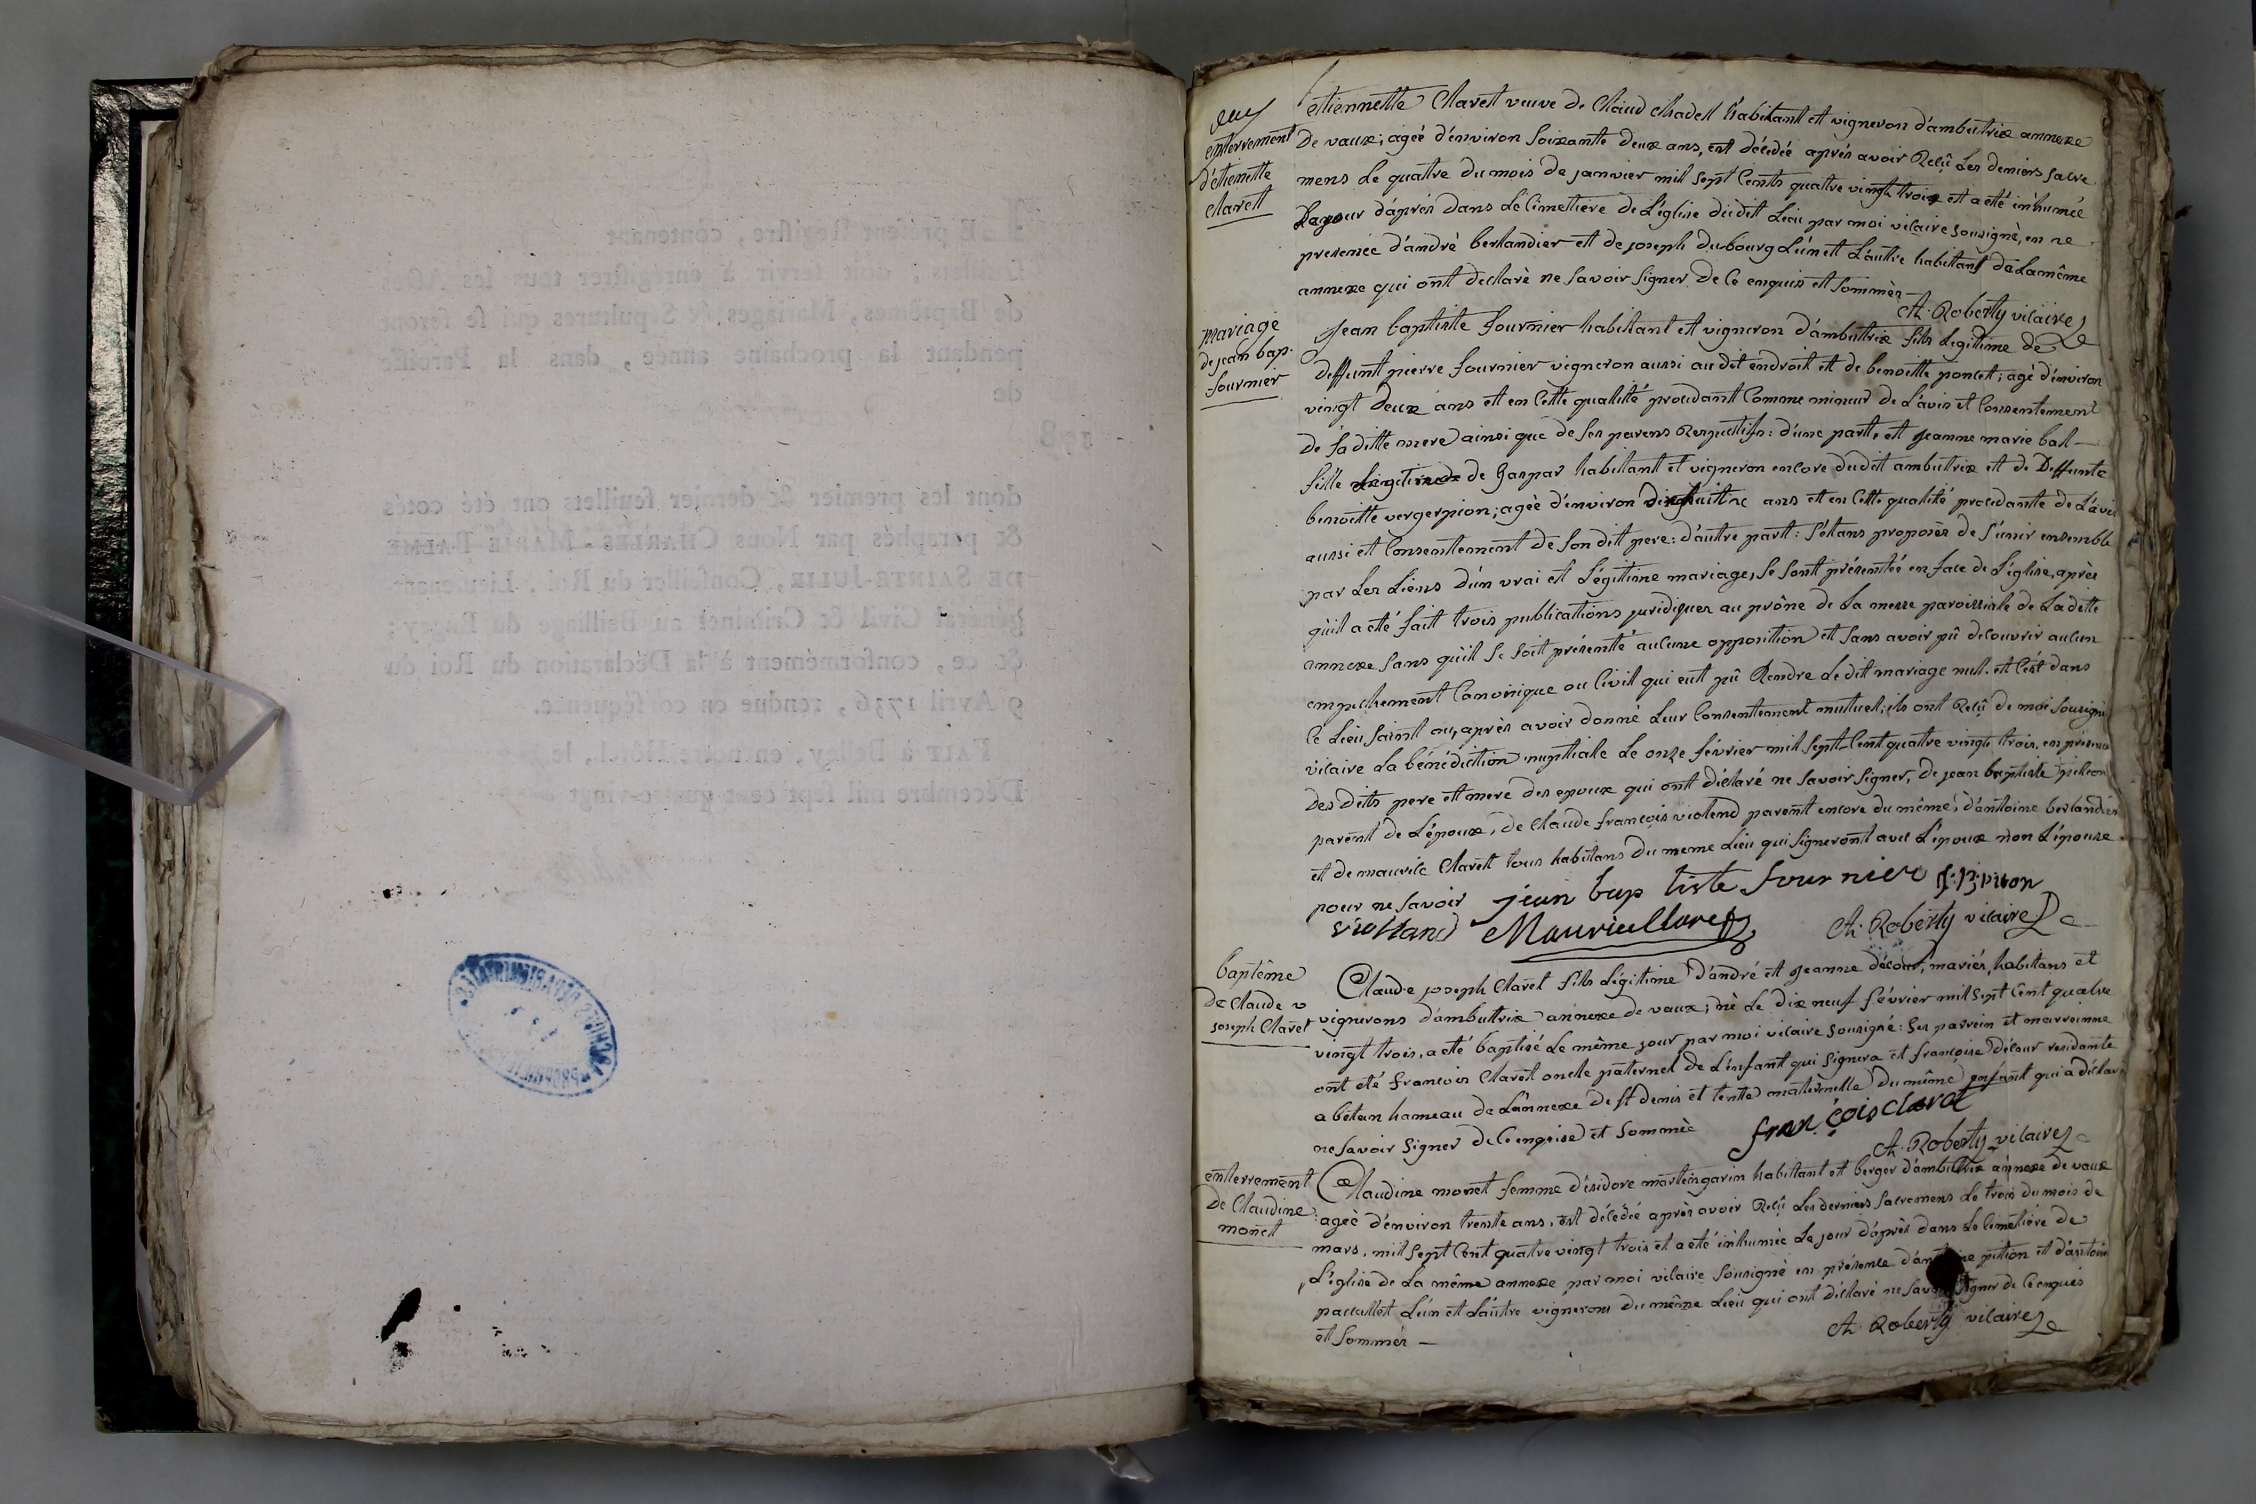 enterrement
d'etienette
clarett
etiennette Clarett veuve de Claud Chadell habitant et vigneron d'ambutrix annexe
De vaux; agée d'environ soixante deux ans, est décédée aprés avoir Reçû Les derniers sacre
mens Le quattre du mois de janvier mil sept Cents quattre vingts trois et a eté inhumée
Le jour d'aprés dans Le Cimetiere de L'église du dit Lieu par moi vicaire sousigné, en
presence d'andré berlandier et de joseph dubourg L'un et L'autre habitans de La même
annexe qui ont declaré ne savoir signer De Ce enquis et sommés
A. Roberty vicaire
mariage
de jean bap.
fournier
Jean baptiste fournier habitant et vigneron d'ambutrix fils Legitime de
deffunt pierre fournier vigneron aussi au dit endroit et de benoitte poncet; agé d'environ
vingt deux ans et en Cette qualité procedant Comme mineur de L'avis et Consentement
de sa ditte mere ainsi que de ses parens Respectifs: d'une part, et jeanne marie bal
fille de Gaspar habitant et vigneron encore dudit ambutrix et de Deffunte
benoitte vergerpion; agée d'environ dixhuit ans et en Cette qualité procedante de L'avis
aussi et Consentement de son dit pere: d'autre part: s'étans proposés de s'unir ensemble
par Les Liens d'un vrai et Légitime mariage, se sont présentés en face de L'église, aprés
qu'il a eté fait trois publications juridiques au prône de La messe paroissiale de La ditte
annexe sans qu'il se soit présenté aucune opposition et sans avoir pû decouvrir aucun
empechement Canonique ou Civil qui eut pû Rendre Le dit mariage nul. et C'est dans
Ce Lieu saint ou, aprés avoir donné Leur Consentement mutuel; ils ont Reçû de moi sousigné
vicaire La bénédiction nuptiale Le onze février mil sept Cent quattre vingts trois. en présence
Des Dits pere et mere des epoux qui ont déclaré ne savoir signer, De jean baptiste
parent de L'époux, de Claude françois violend parent encore du même, d'antoine berlandier
et de maurile Clarett tous habitans Du meme Lieu qui signeront avec L'époux non L'épouse
pour ne savoir jean bap tiste fournier
violland A. Roberty vicaire
baptême
De Claude
joseph Claret
Claude joseph Claret fils Légitime D'andré et jeanne décour, mariés, habitans et
vignerons d'ambuttrix annexe de vaux; né Le dix neuf février mil sept Cent quatre
vingt trois, a eté baptisé Le même jour par moi vicaire sousigné: ses parrein et marreinne
ont été françois Clarett oncle paternel de L'enfant qui signera et françoise décour residante
a bétan hameau de L'annexe de st denis et tente maternelle Du même enfant qui a déclaré
ne savoir signer de Ce enquise et sommée françois claret
A. Roberty vicaire
enterrement
De Claudine
monet
Claudine monet femme d'isidore martingarin habitant et berger d'ambuttrix annexe de vaux
agée d'environ trente ans, est décédée aprés avoir Reçû Les derniers sacremens Le trois du mois de
mars, mil sept Cent quatre vingt trois et a eté inhumée Le jour d'aprés dans Le Cimetière de
L'église de La même annexe par moi vicaire sousigné en présence pition et d'antoine
paccallet L'un et L'autre vignerons du même Lieu qui ont déclaré ne savoir signer de Ce enquis
et sommés
A. Roberty vicaire